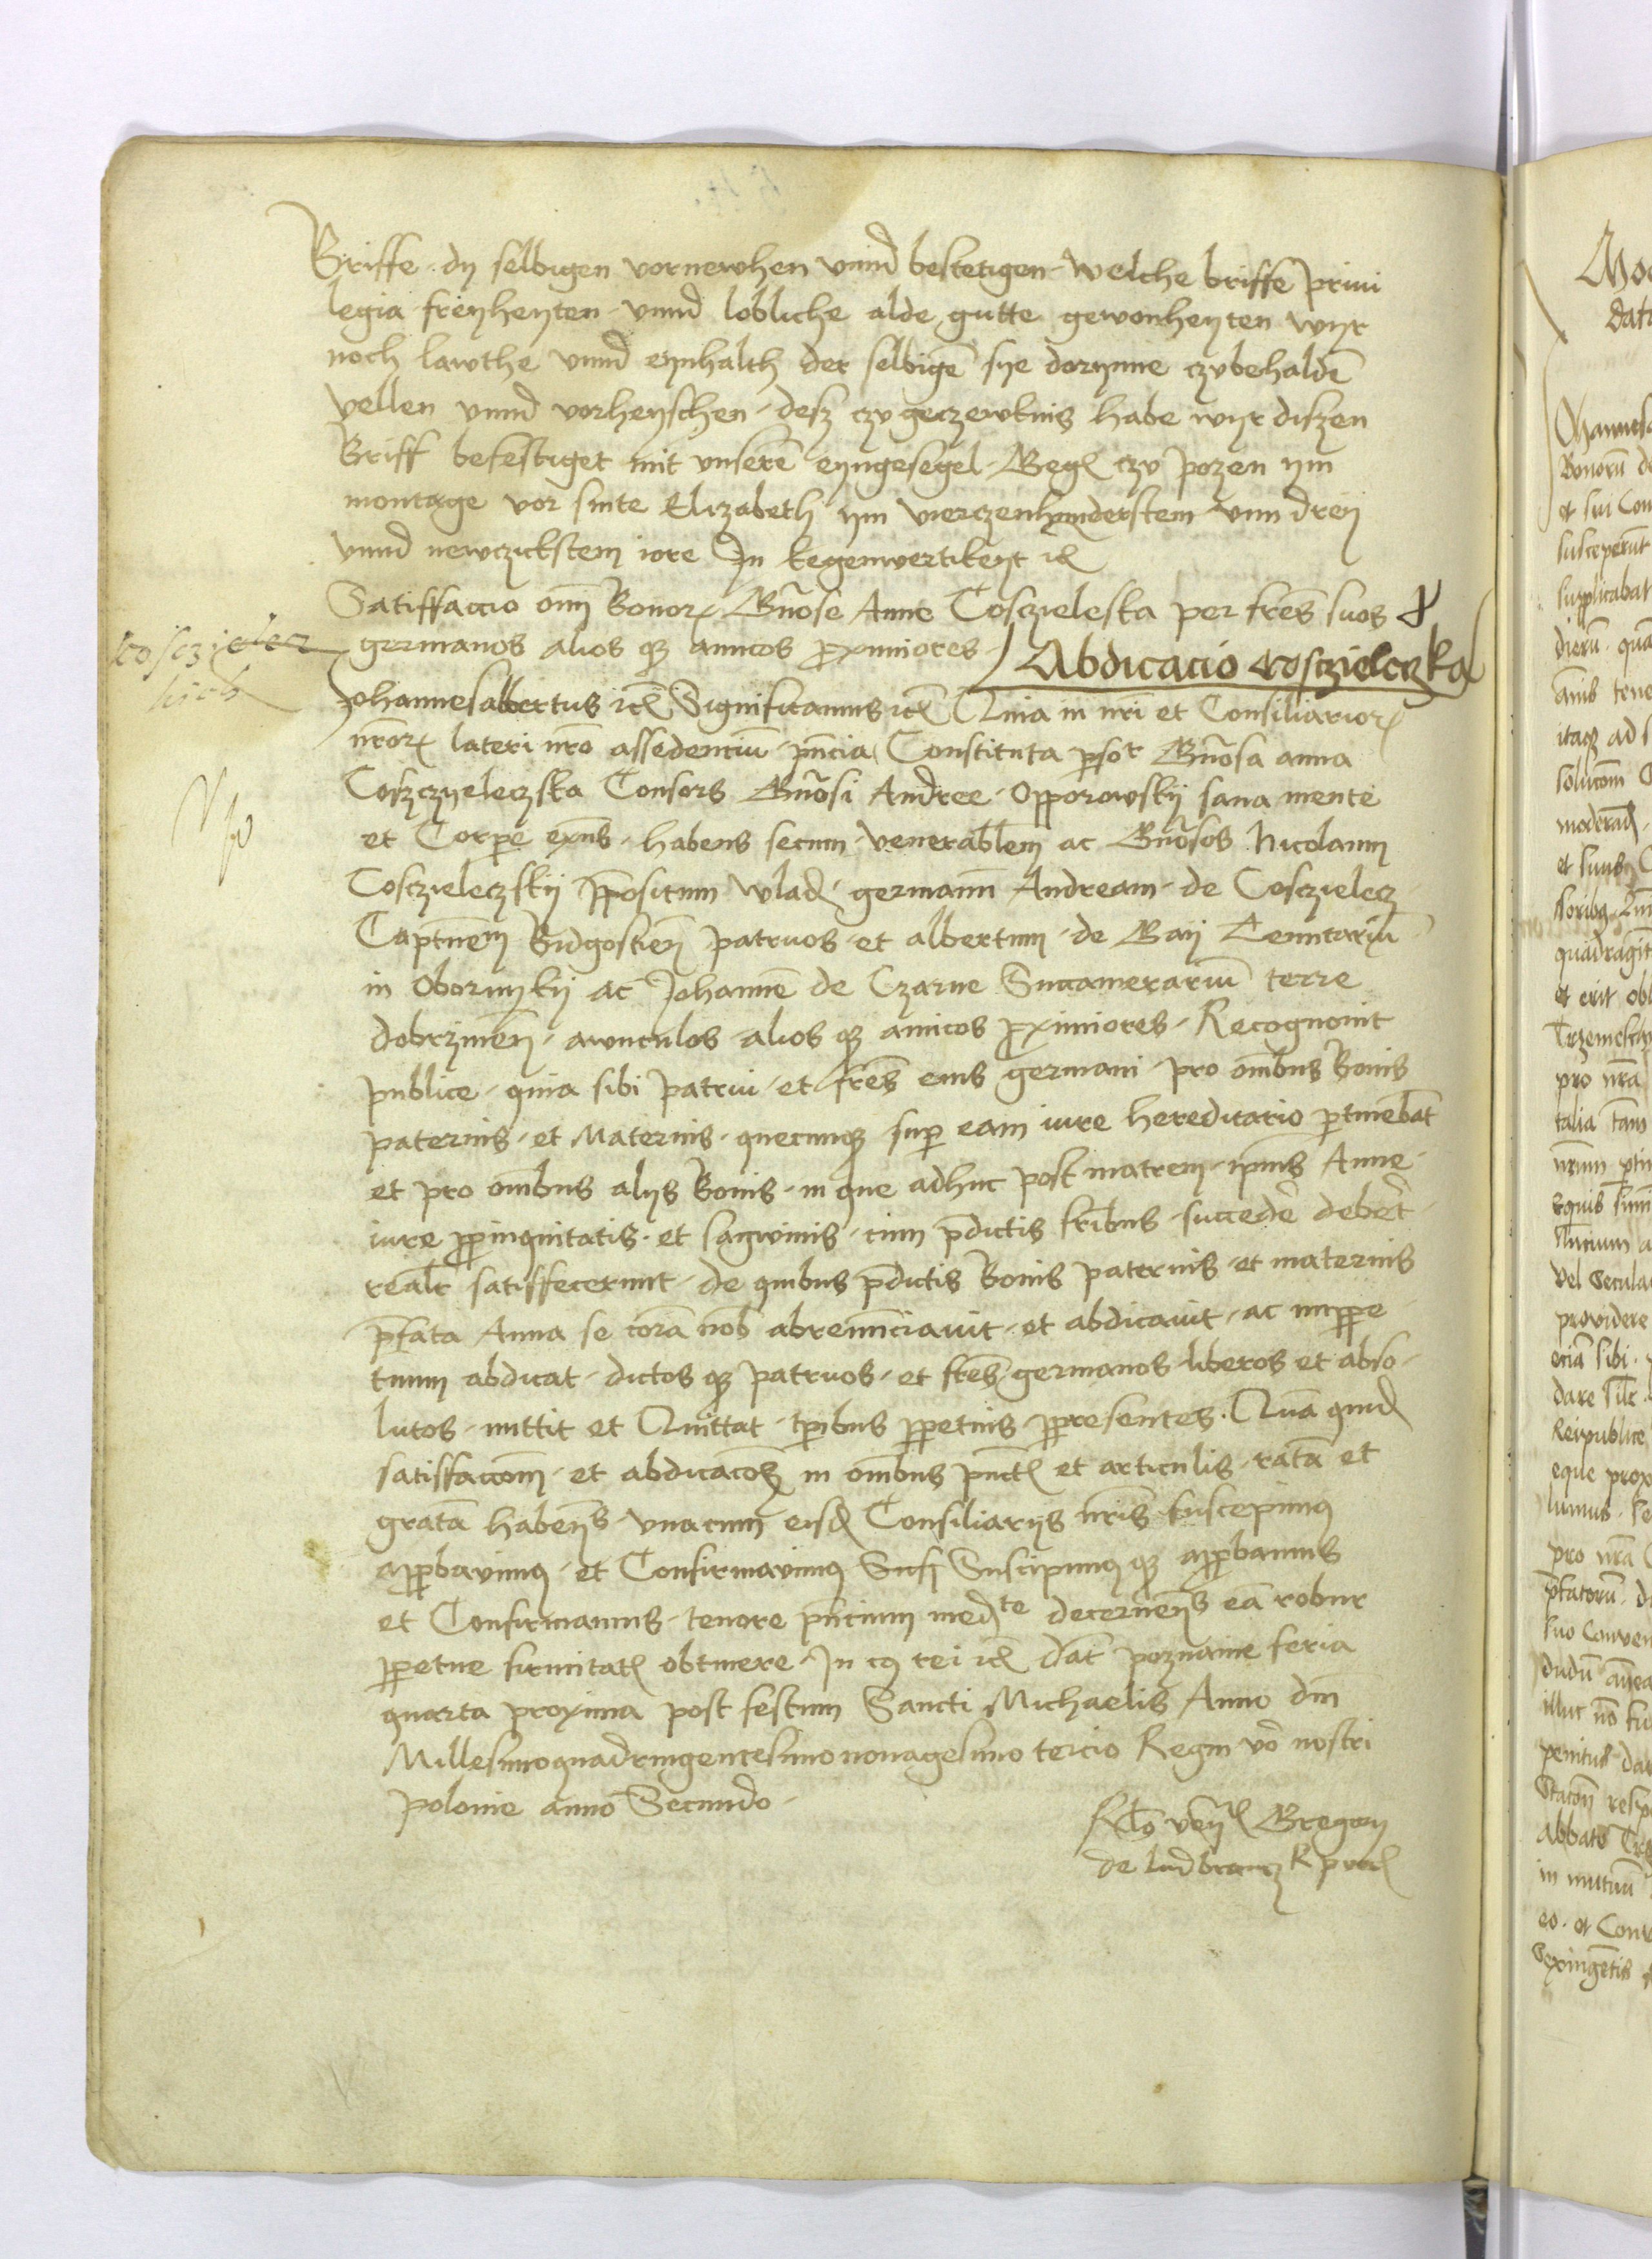 Briffe dy selbigen vornewhen vnnd bestetigen welche briffe priui
legia freyheyten vnnd lobliche alde gutte gewonheyten wyr
noch lawthe vnnd eynhalth der selbigē sye dorynne czubehaldē
vellen vnnd vorheyschen desz czu geczewknis habe wyr diszen
Briff befestiget mit vnserē eyngesegel Gegē czu pozen ym
montage vor sinte Elizabeth ym vierczenhunderstem vnn drey
vnnd newczickstem iore In kegenwertikeyt
Satiffaccio om̄ Bonor Gn̄ose Anne Cosczieleska per fres suos &
germanos alios qȝ amicos proximiores
Abdicacio cosczielczka
cosczielecz
kich
Johannesalbertus Significamus Quia in nr̄i et Consiliarior
nr̄or lateri nr̄o assedenciū pn̄cia Constituta pso^r Gn̄osa anna
Cosczyeleczska Consors Gn̄osi Andree Opporowskij sana mente
et Corpe exn̄s habens secum venerablem ac Gn̄osos Nicolaum
Cosczieleczskij ppositum Wlad germanū Andream de Cosczielecz
Captn̄em Bidgostien̄ patruos et albertum de Gay Tenutariū
in Obornykij ac Johannē de Czarne Succamerariū terre
dobrzinen̄ awnculos alios qȝ amicos proximiores Recognouit
publice quia sibi patrui et fres eius germani pro om̄bus Bonis
paternis et Maternis quecumqȝ sup eam iure hereditario ptinebāt
et pro om̄bus alijs Bonis in que adhuc post matrem ipsius Anne
iure ppinquitatis et sangwinis cum pdictis frībus succedē debēt
realr satisffecerunt de quibus pdictis Bonis paternis et maternis
pfata Anna se corā nob abrenūciauit et abdicauit ac imppe
tuum abdicat dictos qȝ patruos et fres germanos liberos et abso
lutos mittit et Quittat tpībus ppetuis ppresentes Quā quid
satisffaccom̄ et abdicacōȝ in om̄bus pūct et articulis ratā et
gratā haben̄s vnacum eisd Consiliarijs nr̄is suscepimꝰ
appbavimꝰ et Confirmavimꝰ Suscipimꝰ qȝ appbamus
et Confirmamus tenore pn̄cium med^te decernen̄s eā robur
ppetue firmitat obtinere In cꝰ rei dat poznanie feria
quarta proxima post festum Sancti Michaelis Anno dm̄
Millesimoquadringentesimo nonagesimo tercio Regni vō nostri
polonie anno Secundo
Rlō ven̄ Gregorij
de ludbrancz R p vic